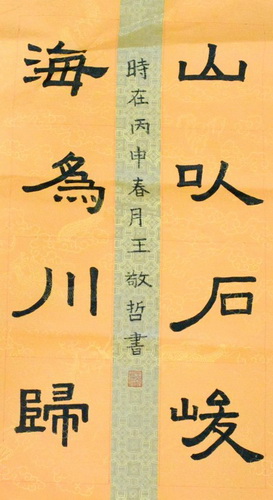 山㕥石峻
海為川歸
時在丙申春月王敬哲書